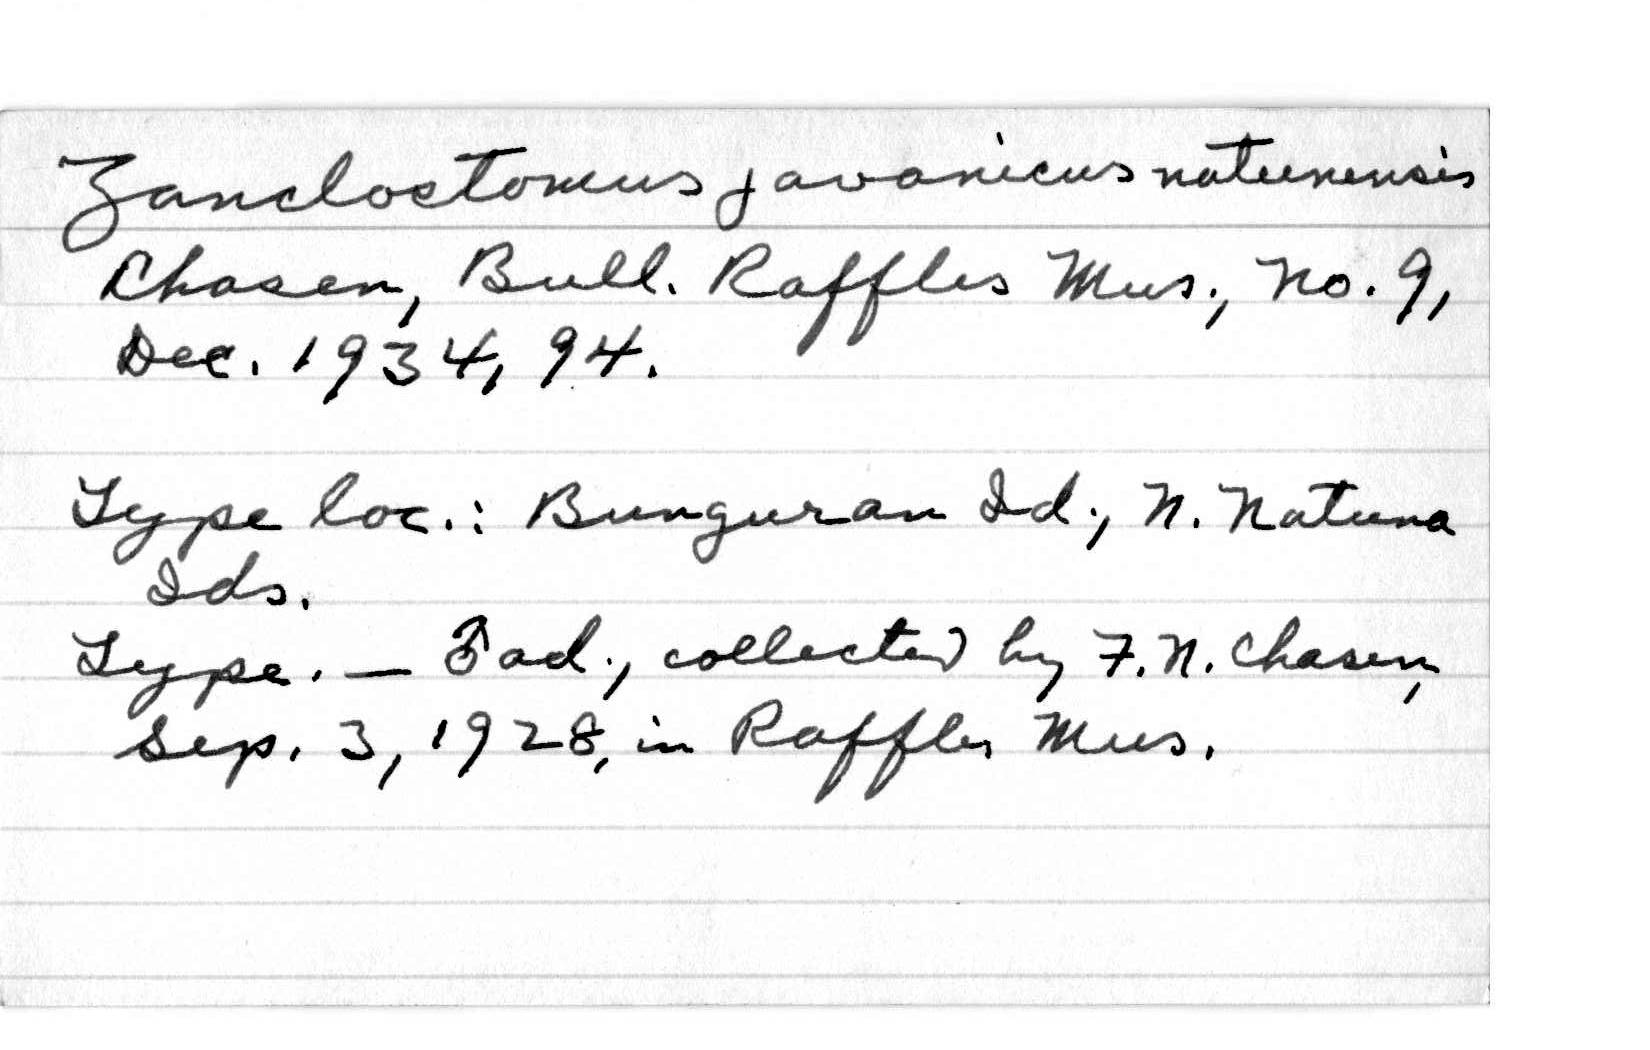 Zanclostomus javanicus natunensis
Chasen, Bull. Raffles Mus., No. 9,
Dec. 1934, 94.
Type loc.: Bunguran Id., N. Natuna
Ids.
Type. — ♂ ad., collected by F. N. Chasen,
Sep. 3, 1928, in Raffles Mus.